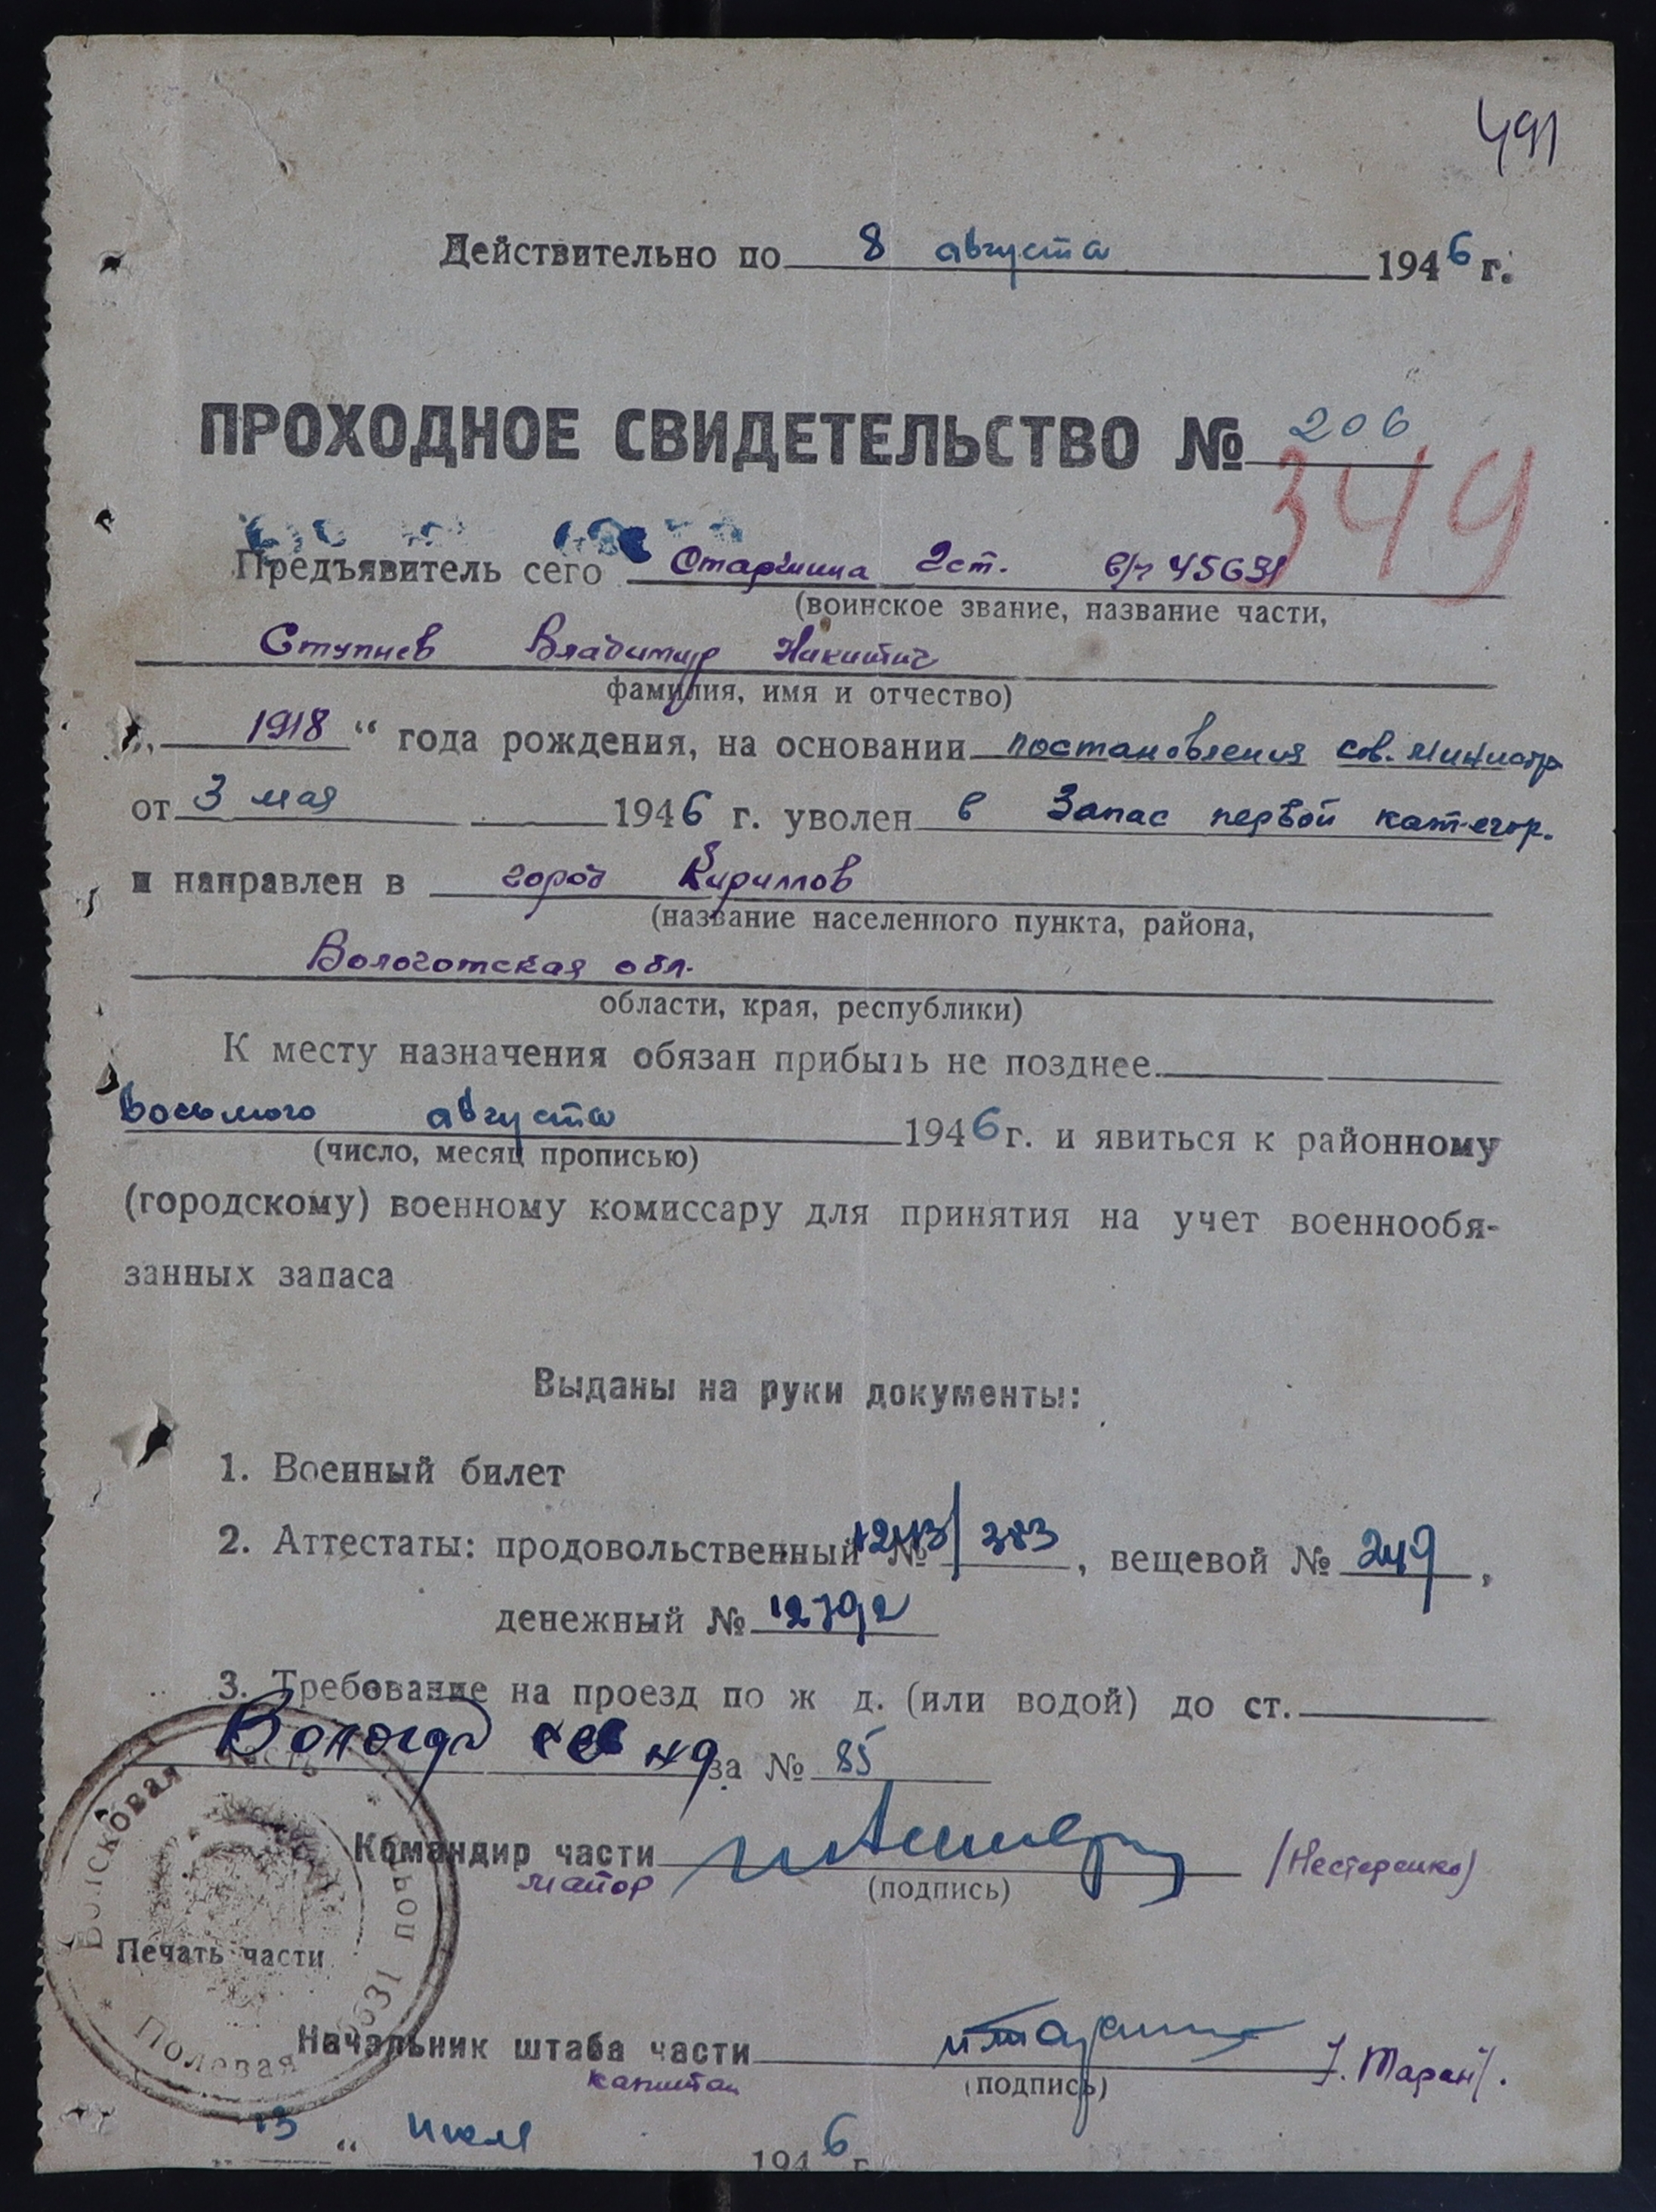 491
Действительно по 8 августа 1946 г.
ПРОХОДНОЕ СВИДЕТЕЛЬСТВО № 206
349
Предъявитель сего Старшина 2ст. в/ч 45631
(воинское звание, название части,
Ступнев Владимир Никитич
фамилия, имя и отчество)
„ 1918 “ года рождения, на основании постановления сов. министр
от 3 мая 1946 г. уволен в Запас первой категор.
и направлен в город Кириллов
(название населенного пункта, района,
Вологотская обл.
области, края, республики)
К месту назначения обязан прибыть не позднее
восьмого августа 1946 г. и явиться к районному
(число, месяц прописью)
(городскому) военному комиссару для принятия на учет военнообя-
занных запаса
Выданы на руки документы:
1. Военный билет
2. Аттестаты: продовольственный № /383, вещевой № 249,
денежный №
3. Требование на проезд по ж д. (или водой) до ст.
Вологда сев жд за № 85
Командир части (Нестеренко)
майор (подпись)
Печать части
Войсковая часть * Полевая *
Начальник штаба части /. Таран/.
капитан (подпись)
13 “ июля 1946 г